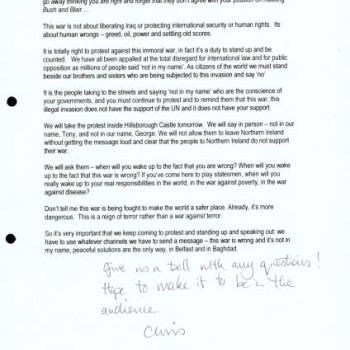 go away thinking you are right and forget that they don't agree with your position on meeting
Bush and Blair…
This war is not about liberating Iraq or protecting international security or human rights. Its
about human wrongs – greed, oil, power and settling old scores.
It is totally right to protest against this immoral war, in fact it's a duty to stand up and be
counted. We have all been appalled at the total disregard for international law and for public
opposition as millions of people said 'not in my name'. As citizens of the world we must stand
beside our brothers and sisters who are being subjected to this invasion and say 'no'
It is the people taking to the streets and saying 'not in my name' who are the conscience of
your governments, and you must continue to protest and to remind them that this war, this
illegal invasion does not have the support of the UN and it does not have your support.
We will take the protest inside Hillsborough Castle tomorrow. We will say in person – not in our
name, Tony, and not in our name, George. We will not allow them to leave Northern Ireland
without getting the message loud and clear that the people to Northern Ireland do not support
their war.
We will ask them – when will you wake up to the fact that you are wrong? When will you wake
up to the fact that this war is wrong? If you've come here to play statesmen, when will you
really wake up to your real responsibilities in the world, in the war against poverty, in the war
against disease?
Don't tell me this war is being fought to make the world a safer place. Already, it's more
dangerous. This is a reign of terror rather than a war against terror.
So it's very important that we keep coming to protest and standing up and speaking out: we
have to use whatever channels we have to send a message – this war is wrong and it's not in
my name, peaceful solutions are the only way, in Belfast and in Baghdad.
Give us a bell with any questions!
Hope to make it to be in the
audience
Chris